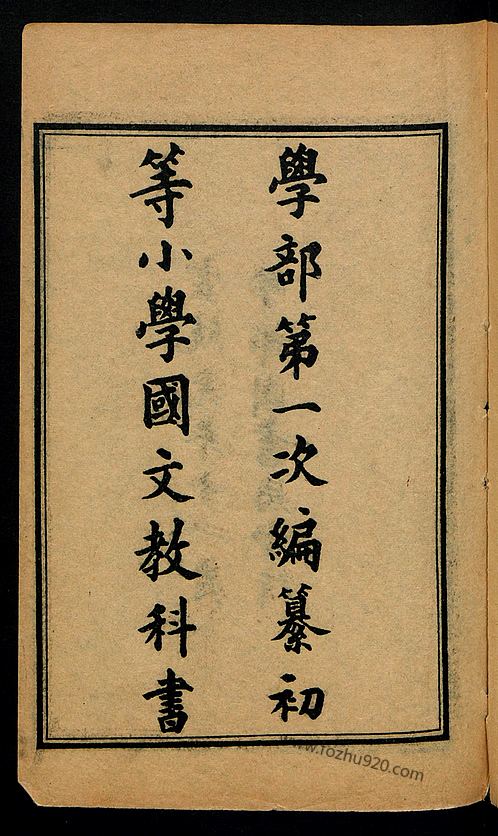 學部第一次編纂初
等小學國文教科書
www.fozhu920.com